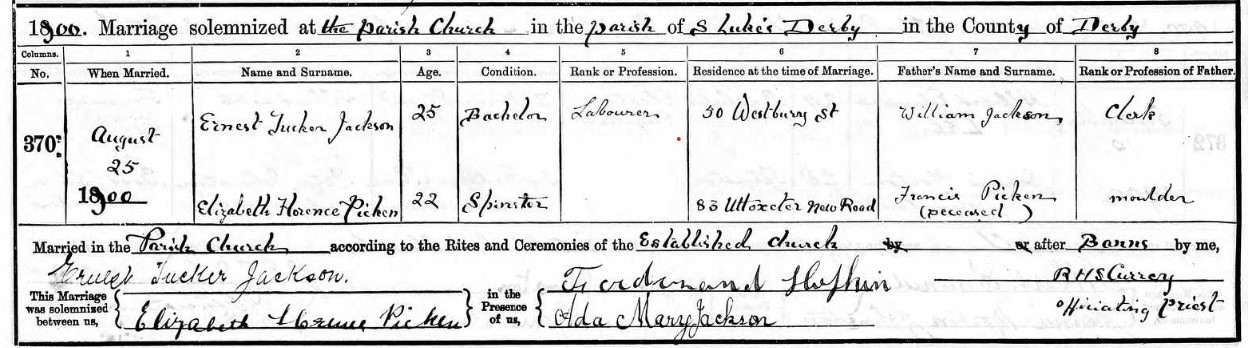 1900. Marriage solemnized at the Parish Church in the parish of S Luke's Derby in the County of Derby
Columns. 1 2 3 4 5 6 7 8
No. When Married. Name and Surname. Age. Condition. Rank or Profession. Residence at the time of Marriage. Father's Name and Surname. Rank or Profession of Father.
370 August 25 1900
Ernest Tucker Jackson 25 Bachelor Labourer 50 Westbury St William Jackson Clerk
Elizabeth Florence Picken 22 Spinster 83 Uttoxeter New Road Francis Picken (Deceased) moulder
Married in the Parish Church according to the Rites and Ceremonies of the Established Church by or after Banns by me,
Ernest Tucker Jackson.
Elizabeth Florence Picken
This Marriage was solemnized between us,
in the Presence of us,
Ferdinand
Ada Mary Jackson
R H S Currey
Officiating Priest